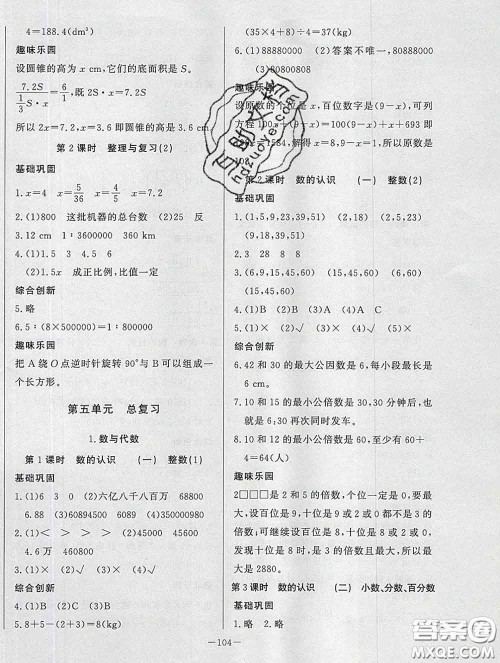 4=188.4(dm³)
趣味乐园
设圆锥的高为 x cm,它们的底面积是 S。
7.2S / (1/3 S·x) = 6/1,既 2S·x=7.2S
所以 2x=7.2,x=3.6 即圆锥的高是 3.6 cm。
第 2 课时 整理与复习(2)
基础巩固
1.x=4 x=5/4 x=4/5 x=7.2
2.(1)800 这批机器的总台数 (2)25 反
3.12 cm 1:3600000 360 km
4.(1)√
(2)1.5x 成正比例,比值一定
综合创新
5.略
6.5:(8×500000)=1:800000
趣味乐园
把 A 绕 O 点逆时针旋转 90°与 B 可以组成一
个长方形。
第五单元 总复习
1.数与代数
第 1 课时 数的认识 (一) 整数(1)
基础巩固
1.(1)6 3 0 (2)六亿八千八百万 68800
(3)88 (4)60894500 60890000 6089
(5)9450 8645 (6)354999 350000980
2.(1)> > > < (2)√ × × √
4.6万 460000
综合创新
5.8+5-(2+3)=8(kg)
(35×4+8)÷4=37(kg)
6.(1)88880000 (2)答案不唯一,80888000
(3)80800808
趣味乐园
设原数的个位是 x,百位数字是(9-x),可列
方程 100x+(9-x)=100(9-x)+x+693
即 =1584,解得 x=8,9-x=1,所以原数是
108
第 2 课时 数的认识 (一) 整数(2)
基础巩固
1.(1,5,9,23,39,51) (2,18) (2,5,23)
(9,18,39,51)
2.3 28 8
3.(6,9,15,45,60) (15,45,60) (6,60)
(15,45,60) (60)
4.(1)B (2)A (3)B (4)B
5.(1)× (2)√ (3)√ (4)× (5)×
综合创新
6.42 和 30 的最大公因数是 6,每小段最长是
6 cm。
7.15 和 10 的最小公倍数是 30,30 分钟后也
就是 6:30 再次同时发车。
8.10 和 12 的最小公倍数是 60,至少有 60+
4=64(人)
趣味乐园
2□□□是 2 和 5 的倍数,个位一定是 0,要
是 3 的倍数,百位是 9,十位是 8 或 2 或 0 都不
是 3 的倍数;百位是 1,十位是 9 或 2 或 0 都不是 3 的倍
数;可继续设百位是 8,十位是 8 或 2 或 0,
发现十位是 8 时,是 3 的倍数且最大,所以最
大是 2880。
第 3 课时 数的认识 (二) 小数、分数、百分数
基础巩固
1.略 2.略
—104—
自助文档
hdzuoye.com
作业精灵
MXQE.COM